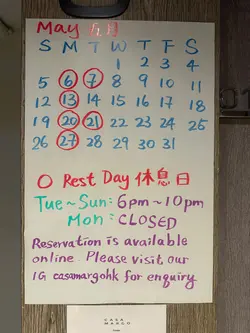 May 五月
S M T W T F S
1 2 3 4
5 6 7 8 9 10 11
12 13 14 15 16 17 18
19 20 21 22 23 24 25
26 27 28 29 30 31
O Rest Day 休息日
Tue~Sun: 6pm~10pm
Mon: CLOSED
Reservation is available
online Please visit our
IG casamargohk for enquiry
CASA
MARGO